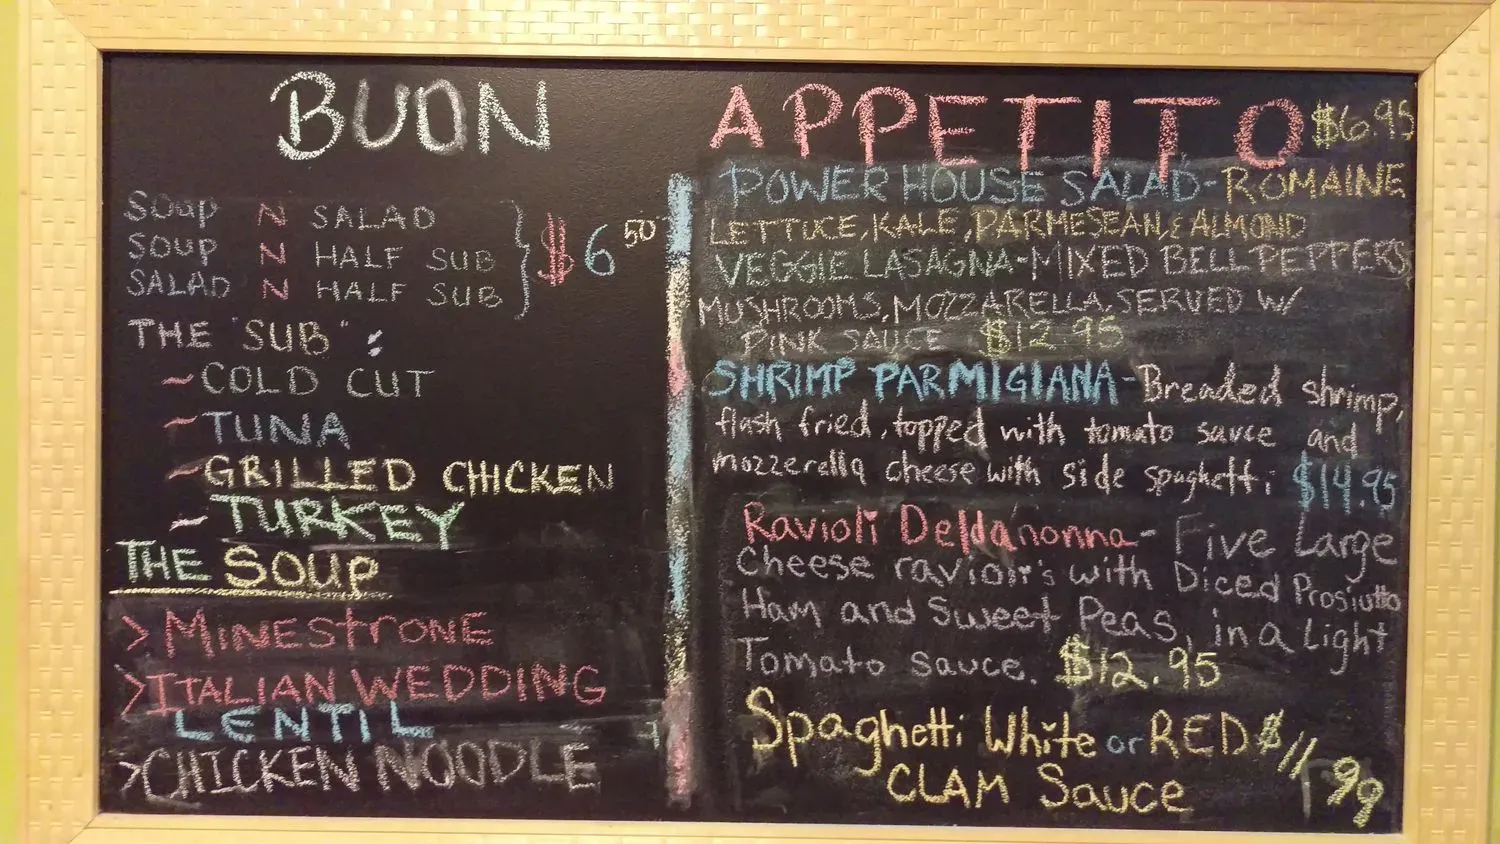 BUON APPETITO
SOUP N SALAD
SOUP N HALF SUB
SALAD N HALF SUB
$6 50
THE "SUB" :
- COLD CUT
- TUNA
- GRILLED CHICKEN
- TURKEY
THE SOUP
> MINESTRONE
> ITALIAN WEDDING
LENTIL
> CHICKEN NOODLE
$6.95
POWER HOUSE SALAD - ROMAINE
LETTUCE, KALE, PARMESEAN, & ALMOND
VEGGIE LASAGNA - MIXED BELL PEPPERS,
MUSHROOMS, MOZZARELLA, SERVED W/
PINK SAUCE $12.95
SHRIMP PARMIGIANA - Breaded shrimp,
flash fried, topped with tomato sauce and
mozzerella cheese with side spaghetti $14.95
Ravioli Delda'nonna - Five Large
Cheese ravioli's with Diced Prosiutto
Ham and Sweet Peas, in a Light
Tomato sauce. $12.95
Spaghetti White or RED $11.99
CLAM Sauce